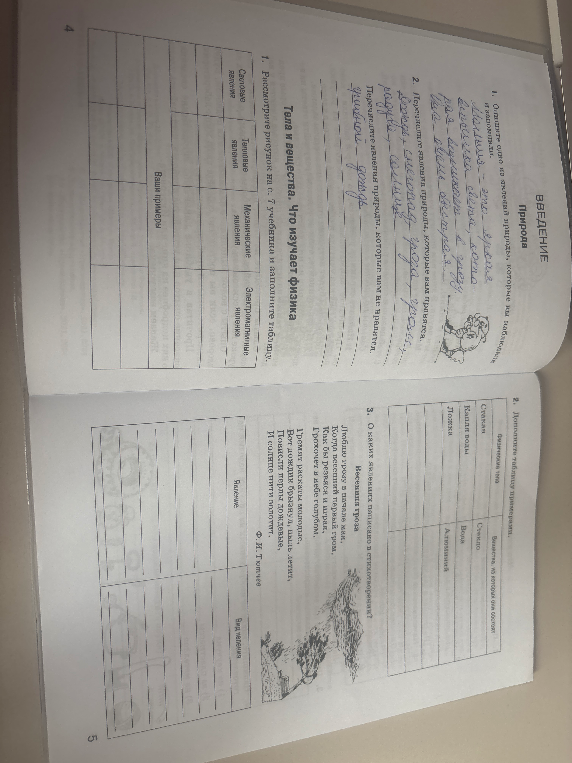 ВВЕДЕНИЕ
Природа
1. Опишите одно из явлений природы, которые вы наблюдали
и запомнили.
Молния - это яркая
вспышка света,
2. Перечислите явления природы, которые вам нравятся.
гроза, гром,
радуга,
Перечислите явления природы, которые вам не нравятся.
дождь
Тела и вещества. Что изучает физика
1. Рассмотрите рисунок на с. 7 учебника и заполните таблицу.
Световые явления
Тепловые явления
Механические явления
Электромагнитные явления
Ваши примеры
4
2. Дополните таблицу примерами.
Физические тела
Вещества, из которых они состоят
Стакан
Стекло
Капля воды
Вода
Ложка
Алюминий
3. О каких явлениях написано в стихотворении?
Весенняя гроза
Люблю грозу в начале мая,
Когда весенний первый гром,
Как бы резвяся и играя,
Грохочет в небе голубом.
Гремят раскаты молодые,
Вот дождик брызнул, пыль летит,
Повисли перлы дождевые,
И солнце нити золотит.
Ф. И. Тютчев
Явление
Вид явления
5